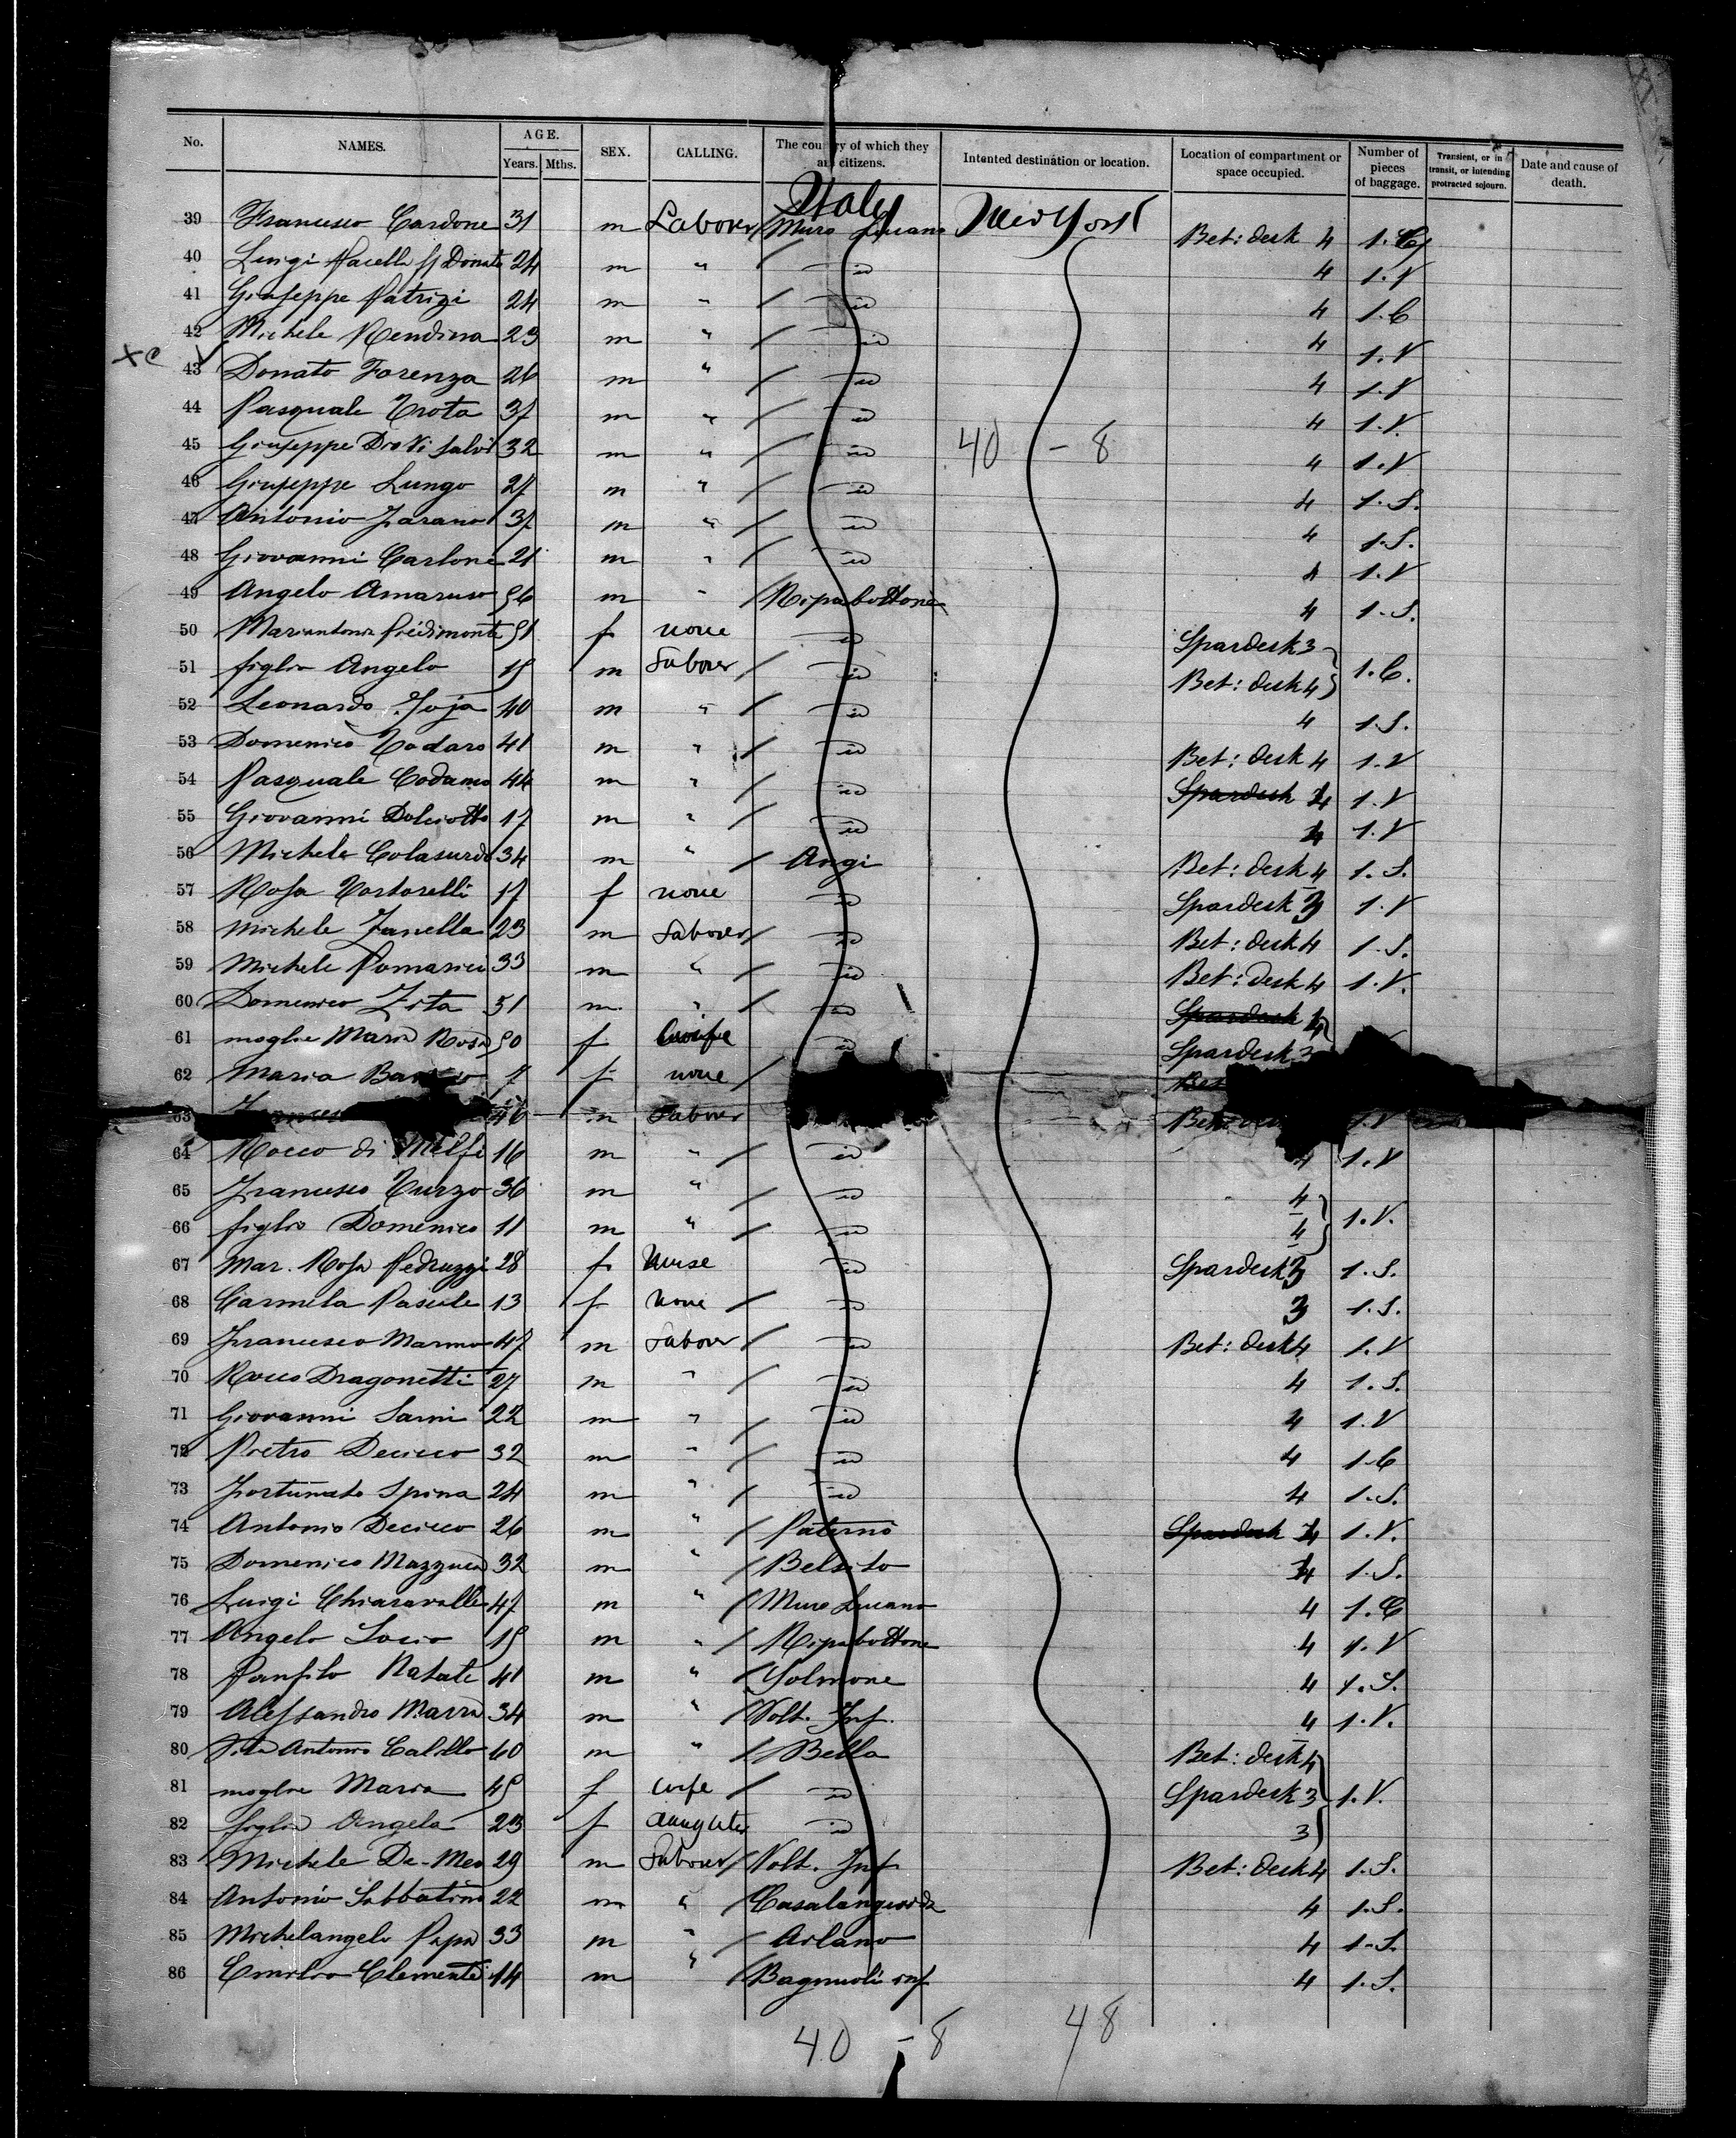 No. NAMES. AGE. Years. Mths. SEX. CALLING. The country of which they are citizens. Intented destination or location. Location of compartment or space occupied. Number of pieces of baggage. Transient, or in transit, or intending protracted sojourn. Date and cause of death.
Italy
39 Francesco Cardone 31 m Laborer Muro Lucano New York Bet: desk 4 1. C
40 Luigi Pacella fj Donato 24 m " id 4 1. V
41 Giuseppe Patrizi 24 m " id 4 1. C
42 Michele Rendina 23 m " id 4 1. V
xc V
43 Donato Forenza 26 m " id 4 1. V
44 Pasquale Trota 37 m " id 4 1. V.
45 Giuseppe 32 m " id 40 - 8 4 1. V
46 Giuseppe Lungo 27 m " id 4 1. S.
47 Antonio Zarano 37 m " id 4 1. S.
48 Giovanni Carlone 21 m " id 4 1. V
49 Angelo Amaruso 56 m " Ripabottone 4 1. S.
50 Mariantonia Piedimonte 51 f none id Spardesk 3
51 figlio Angelo 15 m Laborer id Bet: desk 4 1. C.
52 Leonardo Joja 40 m " id 4 1. S.
53 Domenico Todaro 41 m " id Bet: desk 4 1. V
54 Pasquale Codamo 44 m " id Spardesk 4 1. V
55 Giovanni Dolciotto 17 m " id 4 1. V
56 Michele Colasurdo 34 m " Angi Bet: desk 4 1. S.
57 Rosa Tortorelli 17 f none id Spardesk 3 1. V
58 Michele Zanella 23 m Laborer id Bet: desk 4 1. S.
59 Michele Pomarici 33 m " id Bet: desk 4 1. V.
60 Domenico Zita 51 m " id Spardesk 4
61 moglie Maria Rosa 50 f wife id Spardesk 3
62 Maria 7 f none
63 46 m Laborer 1. V
64 Rocco di Melfi 16 m " id 4 1. V
65 Francesco Turzo 36 m " id 4
66 figlio Domenico 11 m " id 4 1. V.
67 Mar. Rosa Pedruzzi 28 f Nurse id Spardesk 3 1. S.
68 Carmela Pascale 13 f None id 3 1. S.
69 Francesco Marmo 47 m Laborer id Bet: desk 4 1. V
70 Rocco Dragonetti 27 m " id 4 1. S.
71 Giovanni Sarni 22 m " id 4 1. V
72 Pietro Decicco 32 m " id 4 1. C
73 Fortunato Spina 24 m " id 4 1. S.
74 Antonio Decicco 26 m " Paterno Spardesk 4 1. V.
75 Domenico Mazzuca 32 m " Belsito 4 1. S.
76 Luigi Chiaravalle 47 m " Muro Lucano 4 1. C
77 Angelo Socio 15 m " Ripabottone 4 1. V
78 Panfilo Natale 41 m " Solmone 4 1. S.
79 Alessandro Marra 34 m " Volt. Inf. 4 1. V.
80 Vito Antonio Calello 60 m " Bella Bet: desk 4
81 moglie Maria 45 f wife id Spardesk 3 1. V.
82 figlia Angela 23 f daughter id 3
83 Michele De-Meo 29 m Laborer Volt. Inf Bet: desk 4 1. S.
84 Antonio Sabbatino 22 m " Casalanguida 4 1. S.
85 Michelangelo Papa 33 m " Ailano 4 1. S.
86 Emilio Clemente 14 m " Bagnuoli inf 4 1. S.
40 - 8 48